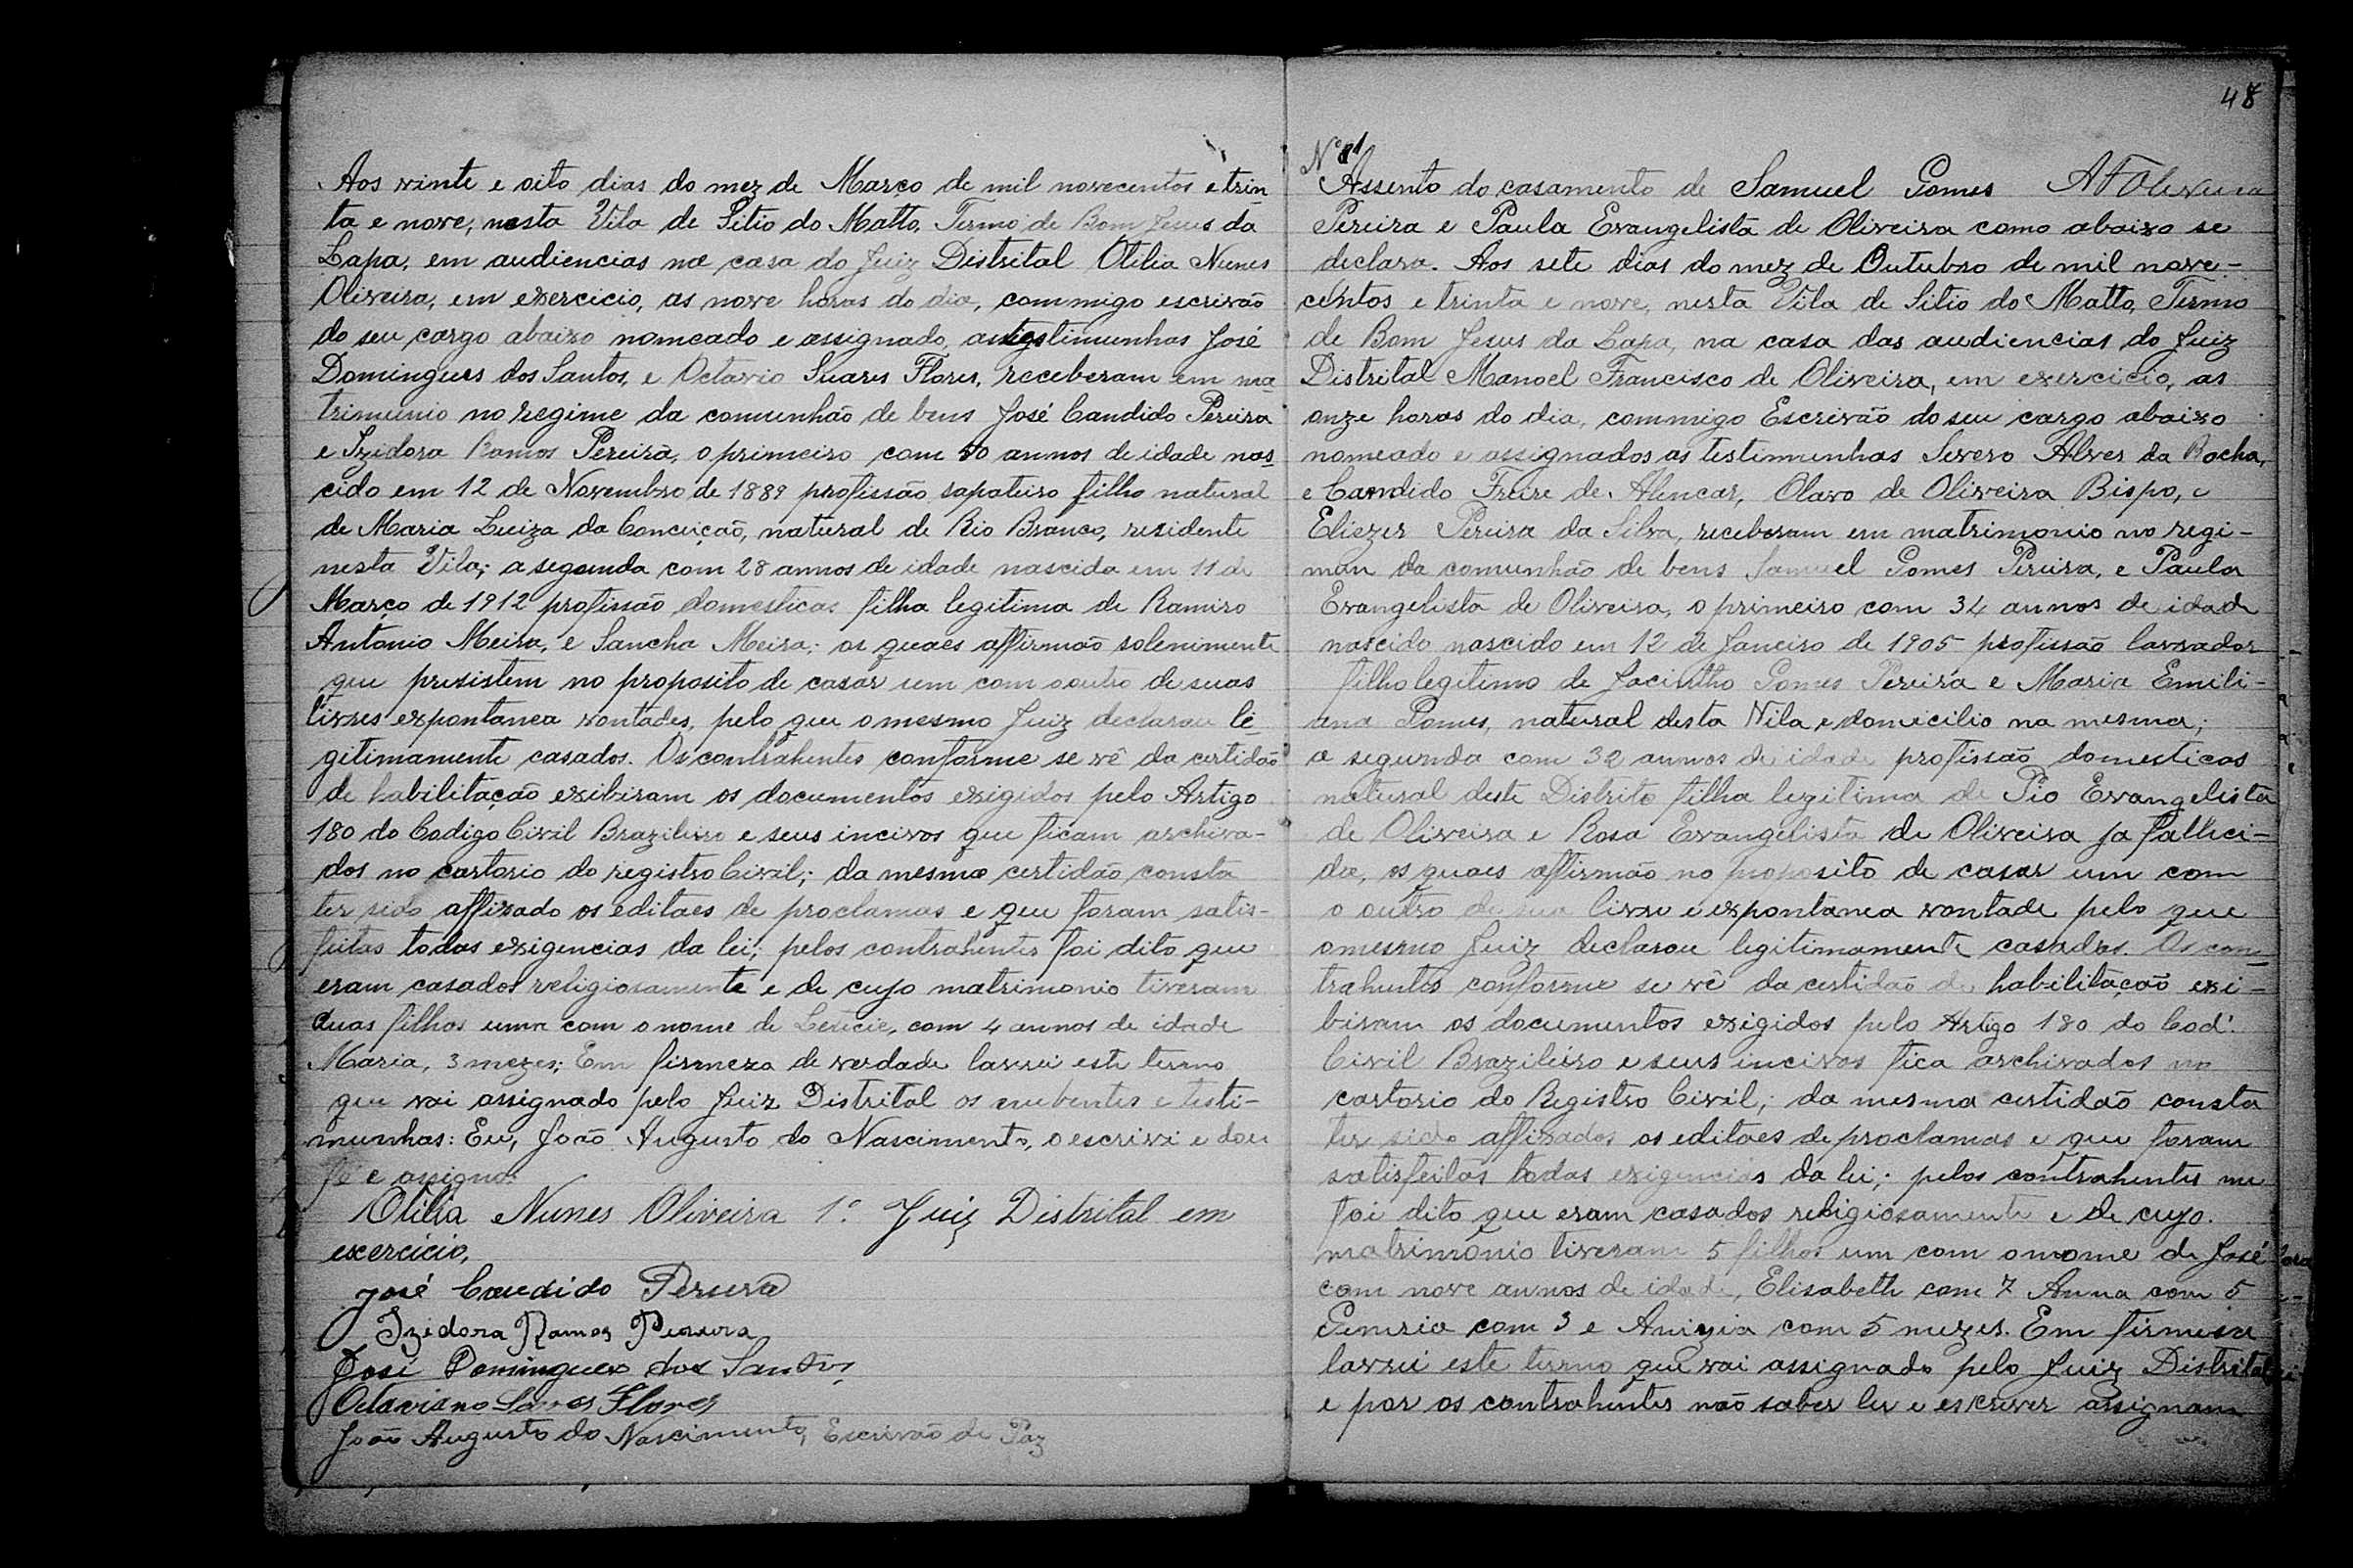 Aos vinte e oito dias do mez de Março de mil novecentos e trin
ta e nove, nesta Vila de Sitio do Matto, Termo de Bom Jesus da
Lapa, em audiencias na casa do Juiz Distrital Otilia Nunes
Oliveira, em exercicio, as nove horas do dia, commigo escrivão
do seu cargo abaixo nomeado e assignado, as testimunhas José
Domingues dos Santos, e Octavio Suares Flores, receberam em ma
trimunio no regime da comunhão de bens José Candido Pereira
e Izidora Ramos Pereira, o primeiro com 50 annos de idade nas
cido em 12 de Novembro de 1889 profissão sapateiro filho natural
de Maria Luiza da Conceição, natural de Rio Branco, residente
nesta Vila; a segunda com 28 annos de idade nascida em 11 de
Março de 1912 profissão domesticas filha legitima de Ramiro
Antonio Meira, e Sancha Meira; os quaes affirmão solenimente
que presistem no proposito de casar um com o outro de suas
livres expontanea vontades, pelo que o mesmo Juiz declarou le
gitimamente casados. Os contrahentes conforme se vê da certidão
de habilitação exibiram os documentos exigidos pelo Artigo
180 do Codigo Civil Brazileiro e seus incivos que ficam archiva-
dos no cartorio do registro Civil; da mesma certidão consta
ter sido affixado os editaes de proclamas e que foram satis-
feitas todas exigencias da lei; pelos contrahentes foi dito que
eram casados religiosamente e de cujo matrimonio tiveram
duas filhas uma com o nome de com 4 annos de idade
Maria, 3 mezes; Em firmeza de verdade lavrei este termo
que vai assignado pelo Juiz Distrital os nubentes e testi-
munhas: Eu, João Augusto do Nascimento, o escrivi e dou
fé e assigno.
Otilia Nunes Oliveira 1º Juiz Distrital em
exercicio,
José Candido Pereira
Izidora Ramos Pereira
José Domingues dos Santos
Octaviano Soares Flores
João Augusto do Nascimento, Escrivão de Paz
48
Nº 81
Assento do casamento de Samuel Gomes A F Oliveira
Pereira e Paula Evangelista de Oliveira como abaixo se
declara. Aos sete dias do mez de Outubro de mil nove-
centos e trinta e nove, nesta Vila de Sitio do Matto, Termo
de Bom Jesus da Lapa, na casa das audiencias do Juiz
Distrital Manoel Francisco de Oliveira, em exercicio, as
onze horas do dia, commigo Escrivão do seu cargo abaixo
nomeado e assignados as testimunhas Severo Alves da Rocha,
e Candido Freire de Alencar, Olavo de Oliveira Bispo, e
Eliezer Pereira da Silva, receberam em matrimonio no regi-
men da comunhão de bens Samuel Gomes Pereira, e Paula
Evangelista de Oliveira, o primeiro com 34 annos de idade
nascido nascido em 12 de Janeiro de 1905 profissão lavrador
filho legitimo de Jacintho Gomes Pereira e Maria Emili-
ana Gomes, natural desta Vila e domicilio na mesma;
a segunda com 32 annos de idade profissão domesticas
natural deste Distrito filha legitima de Pio Evangelista
de Oliveira e Rosa Evangelista de Oliveira ja falleci-
da, os quaes affirmão no proposito de casar um com
o outro de sua livre e expontanea vontade pelo que
o mesmo Juiz declarou legitimamente casados. Os con
trahentes conforme se vê da certidão de habilitação exi-
biram os documentos exigidos pelo Artigo 180 do Cod.
Civil Brazileiro e seus incivos fica archivados no
cartorio do Registro Civil; da mesma certidão consta
ter sido affixados os editaes de proclamas e que foram
satisfeitas todas exigencias da lei; pelos contrahentes me
foi dito que eram casados religiosamente e de cujo
matrimonio tiveram 5 filhos um com o nome de José
com nove annos de idade, Elisabeth com 7 Anna com 5
com 3 e Anizia com 5 mezes. Em firmesa
lavrei este termo que vai assignado pelo Juiz Distrital
e por os contrahentes não saber ler e escrever assignam